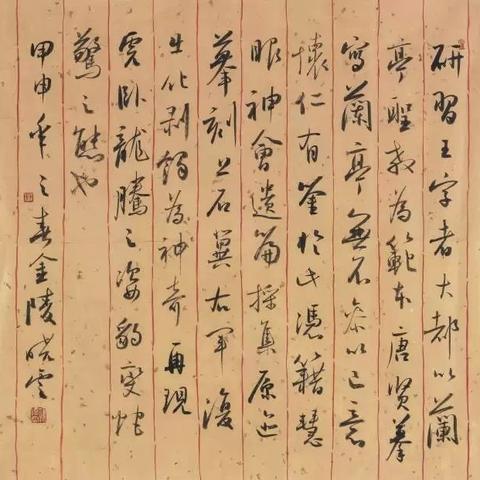 研習王字者大都以蘭
亭聖教為範本唐贤摹
寫蘭亭無不參以己意
懷仁有鉴於此憑籍慧
眼神會遗篇採集原迹
摹刻上石冀右军復
生化剥蚀為神奇再現
虎卧龍騰之姿豹变蛇
驚之態也
甲申年之春金陵曉雲